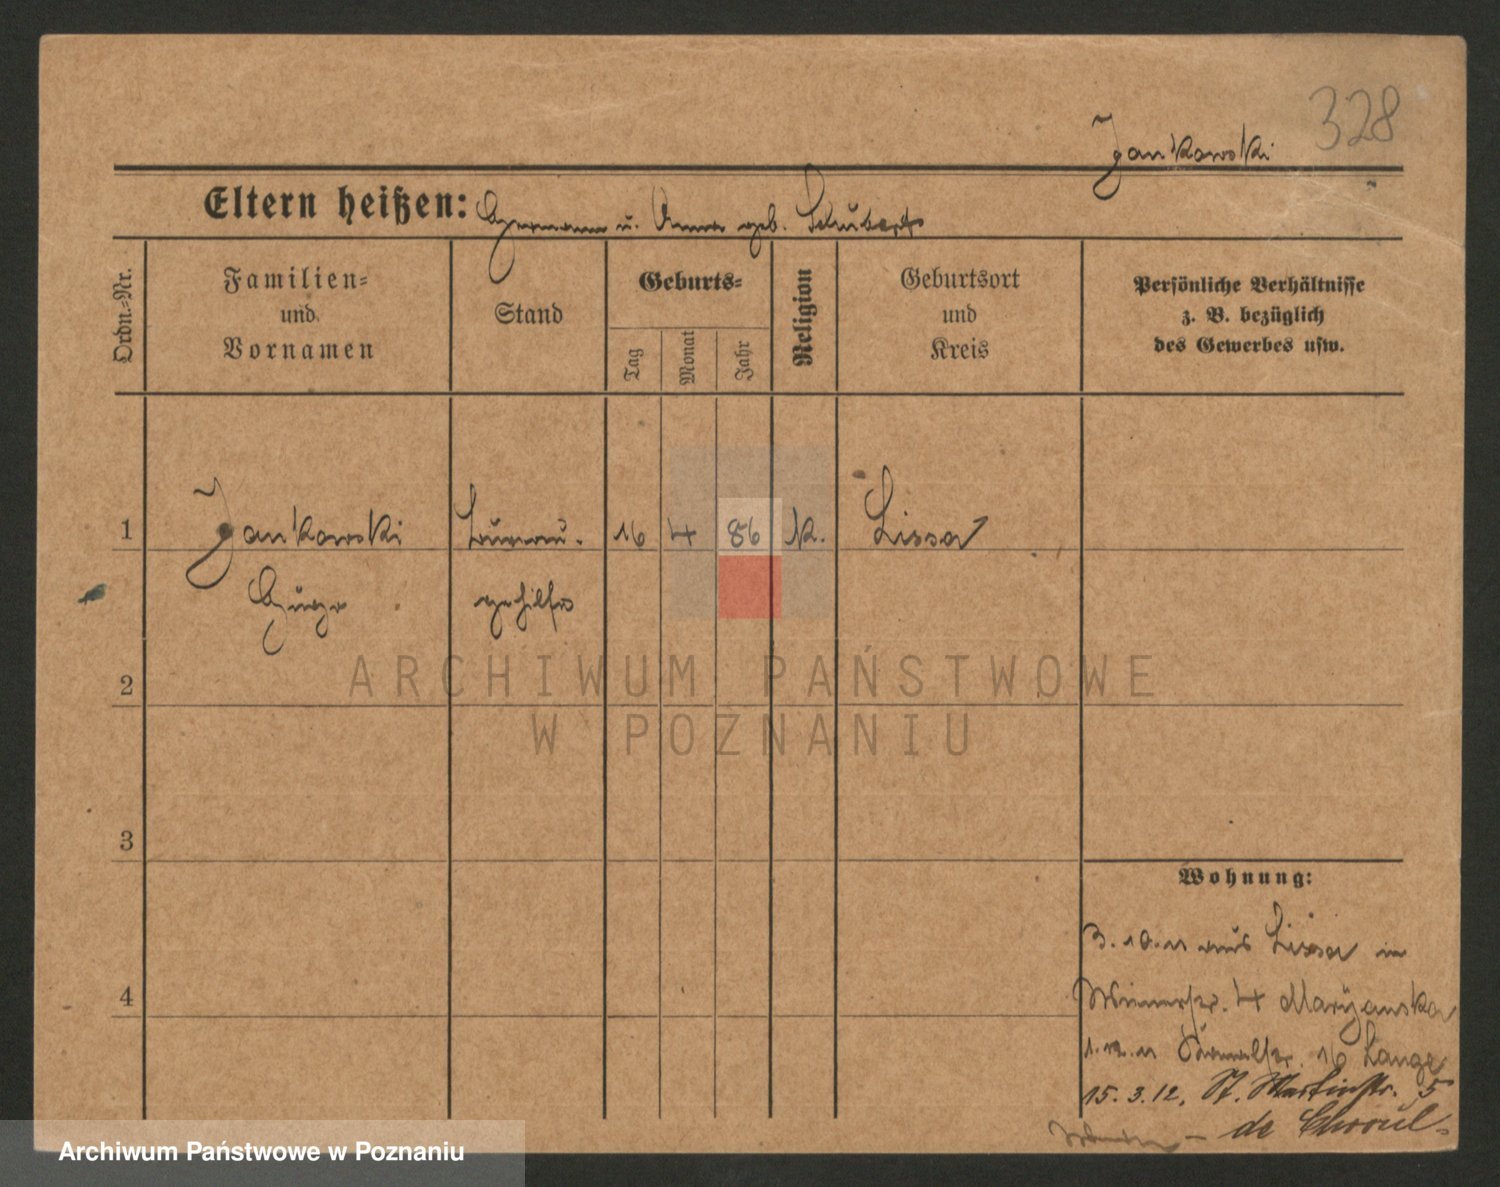 328
Jankowski
Eltern heißen: Hermann u. Anna geb. Schubert
Ordn.-Nr.
Familien-
und
Vornamen
Stand
Geburts-
Tag
Monat
Jahr
Religion
Geburtsort
und
Kreis
Persönliche Verhältnisse
z. B. bezüglich
des Gewerbes usw.
1 Jankowski 16 4 86 k. Lissa
Hugo gehilfe
2
ARCHIWUM PAŃSTWOWE
W POZNANIU
3
Wohnung:
3.10.11 aus Lissa in
4 Maryanska
4
1.12.11 16 Lange
15.3.12. St. Martinstr. 5
de
Archiwum Państwowe w Poznaniu